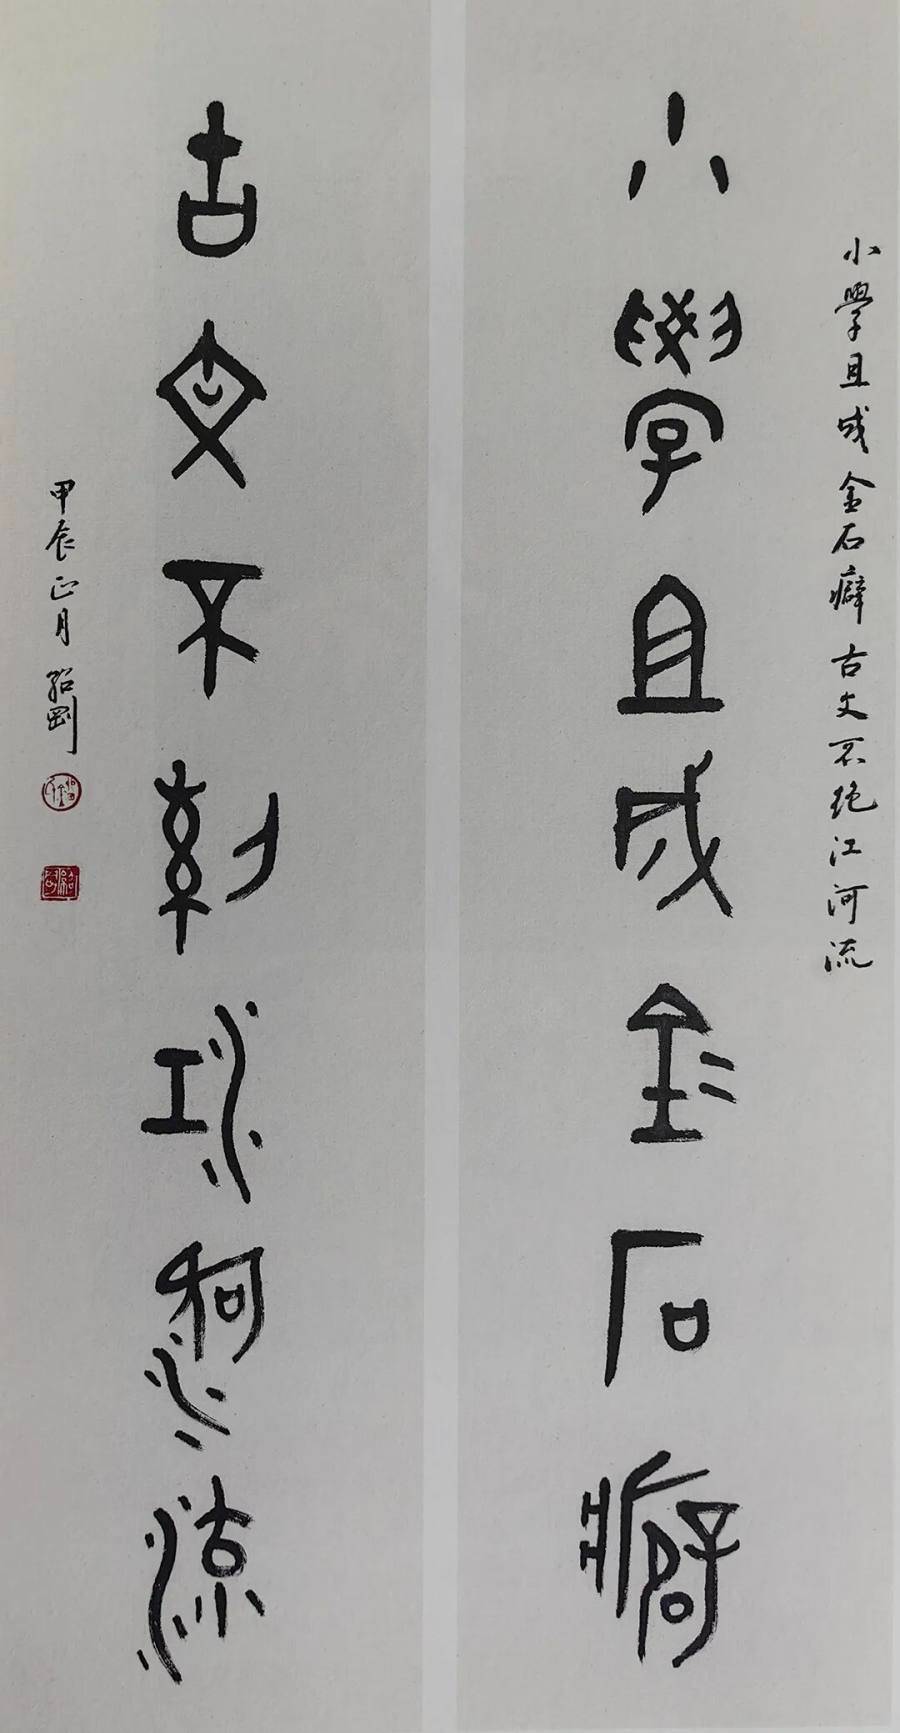 小學且成金石癖古文不絕江河流
小學且成金石癖
古文不絕江河流
甲辰正月紹剛